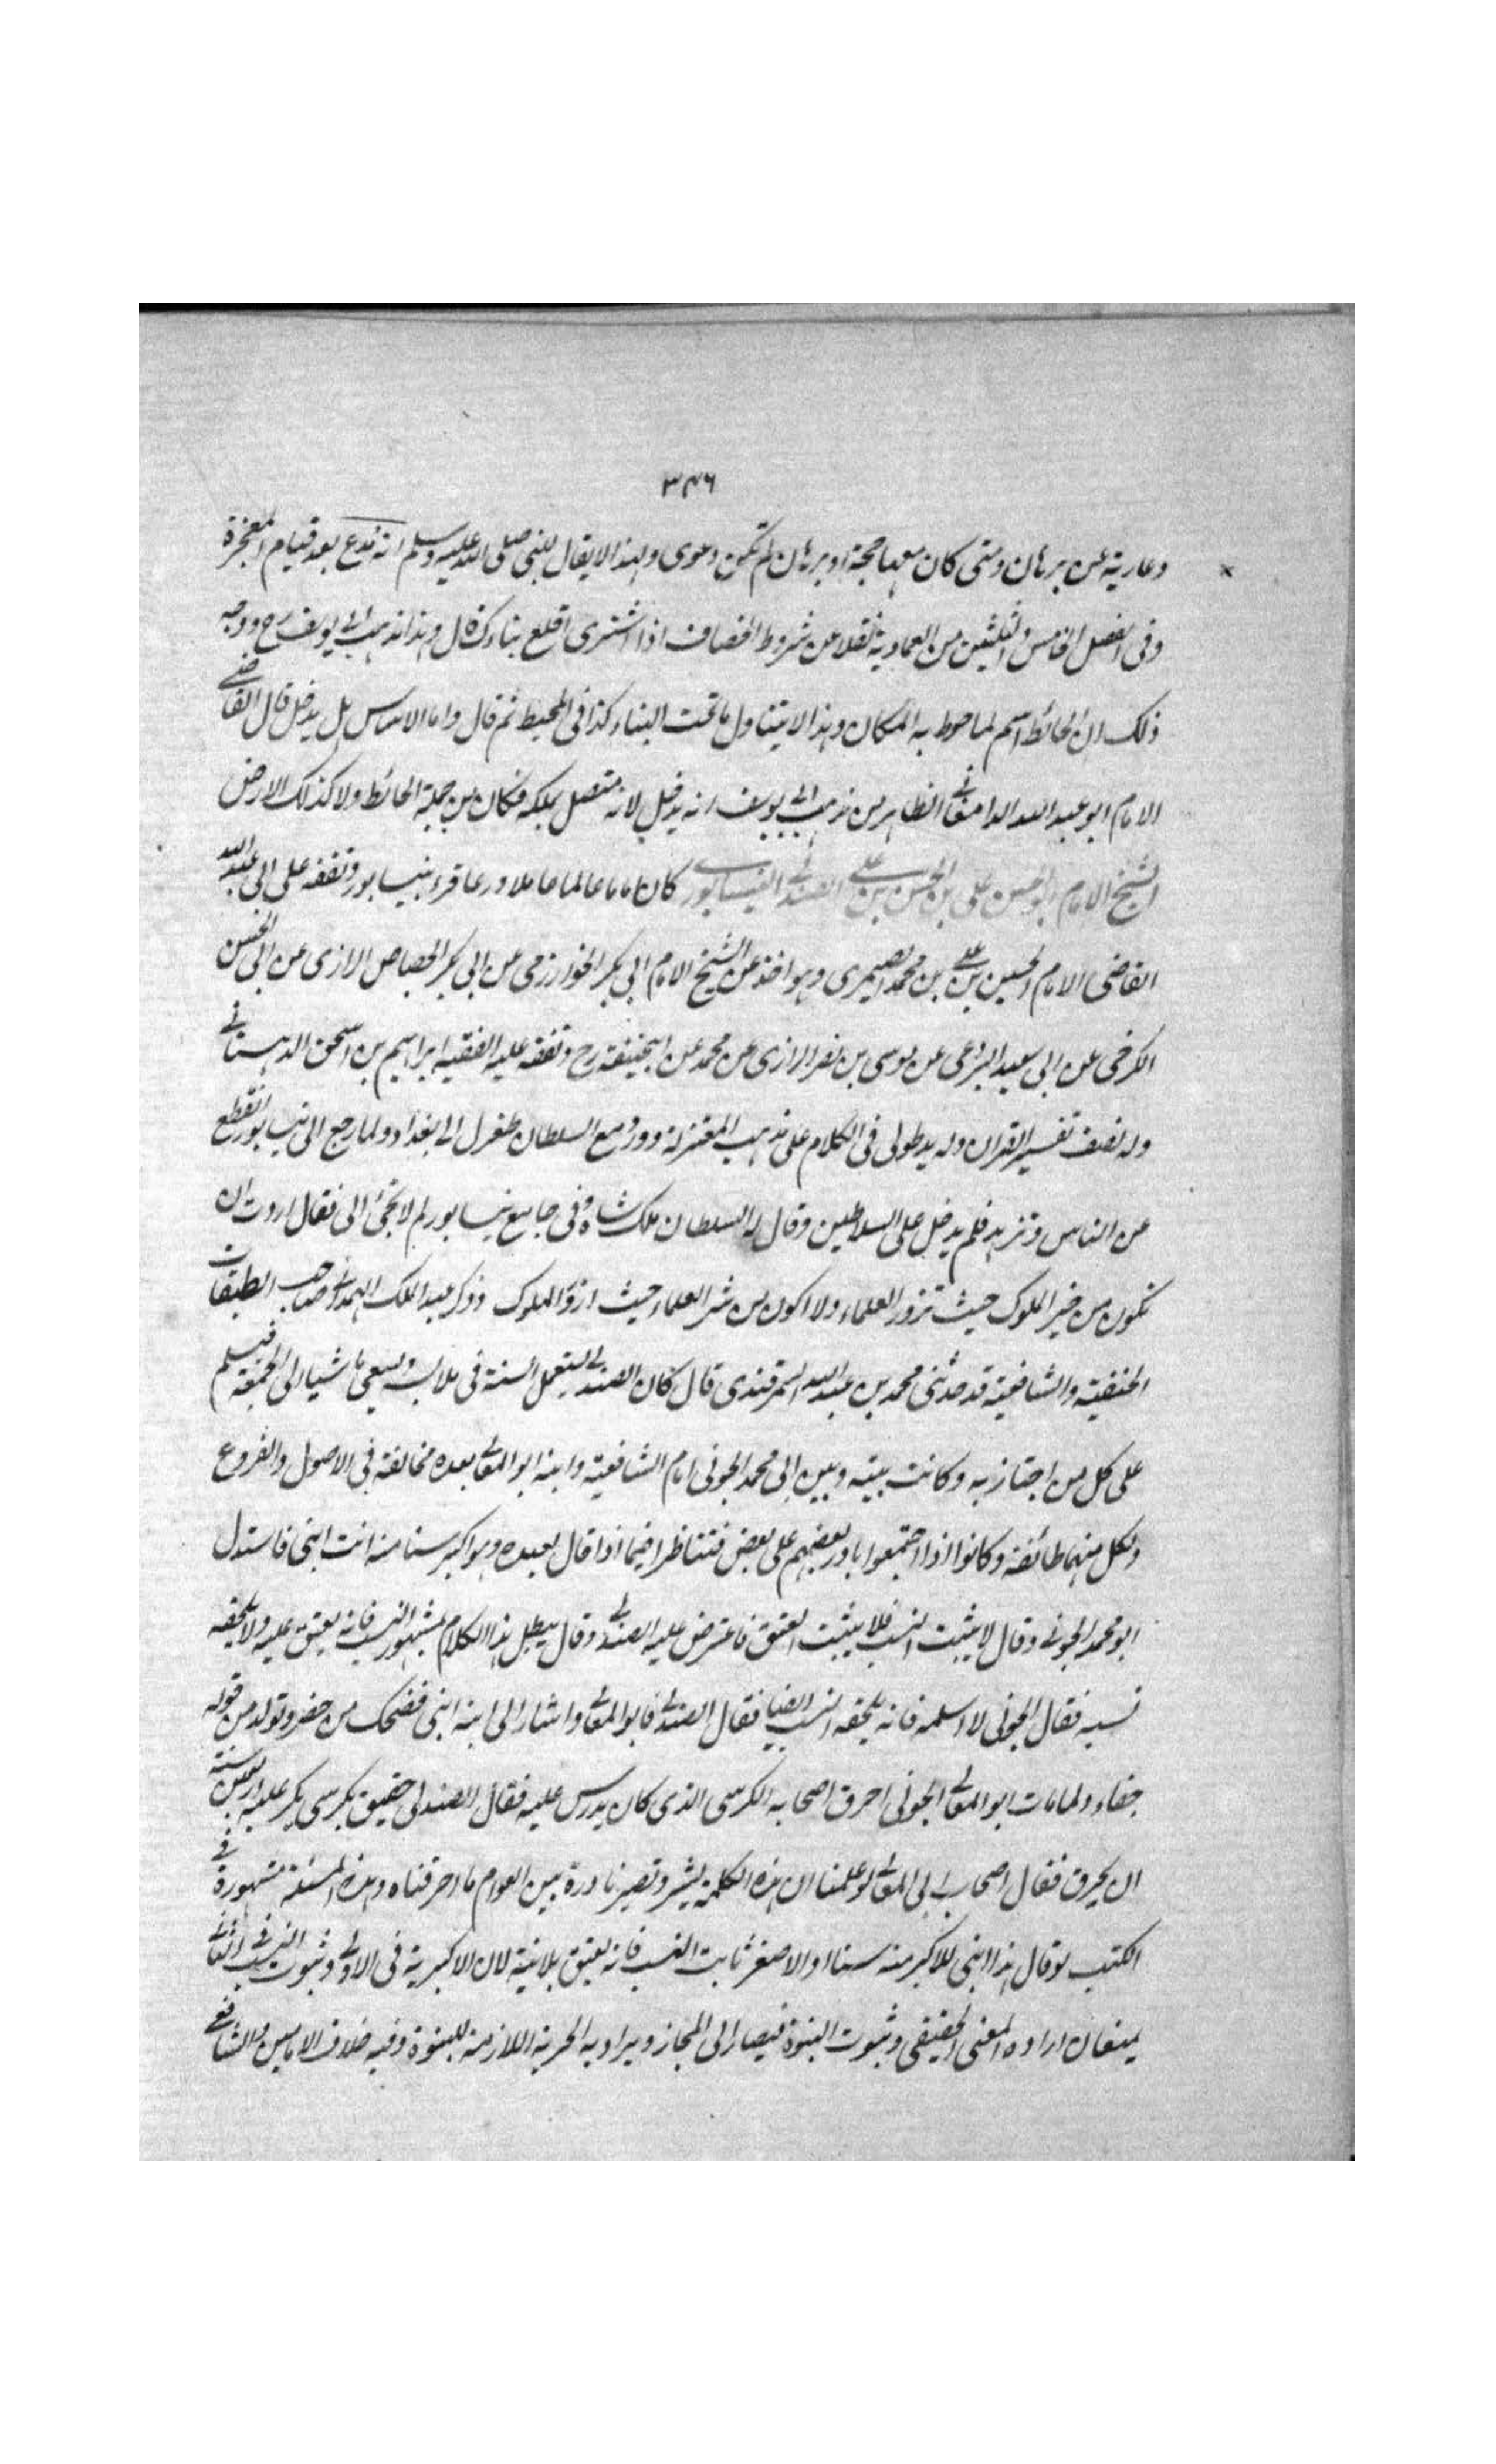 ٣٤٦
وعارية عن برهان ومتى كان معها حجة او برهان لم تكن دعوى ولهذا لا يقال للنبي صلى الله عليه وسلم انه مدع بعد قيام المعجزة
وفى الفصل الخامس والثلثين من العمادية نقلا عن شروط الخصاف اذا اشترى اقلع بناءك قال وهذا مذهب ابى يوسف رح ووجه
ذلك ان الحائط اسم لما حوط به المكان وهذا لا يتناول ما تحت البناء كذا فى المحيط ثم قال واما الاساس هل يدخل قال القاضى
الامام ابو عبد الله الدامغانى الظاهر من مذهب ابى يوسف انه يدخل لانه متصل بملكه فكان من جملة الحائط ولا كذلك الارض
الشيخ الامام ابو الحسن على بن الحسن بن على الصندلى النيسابورى كان اماما عالما عاملا ورعا قرء بنيسابور وتفقه على ابى عبد الله
القاضى الامام الحسين بن على بن محمد الصيمرى وهو اخذ عن الشيخ الامام ابى بكر الخوارزمى عن ابى بكر الجصاص الرازى عن ابى الحسن
الكرخى عن ابى سعيد البردعى عن موسى بن نصر الرازى عن محمد عن ابيحنيفة رح وتفقه عليه الفقيه ابراهيم بن اسحق الدهستانى
وله نصف تفسير القران وله يد طولى فى الكلام على مذهب المعتزلة وورد مع السلطان طغرل الى بغداد ولما رجع الى نيسابور انقطع
عن الناس وتزهد فلم يدخل على السلاطين وقال له السلطان ملك شاه فى جامع نيسابور لم لا تجئ الى فقال اردت ان
تكون من خير الملوك حيث تزور العلماء ولا اكون من شر العلماء حيث ازور الملوك وذكر عبد الملك الهمدانى صاحب الطبقات
الحنفية والشافعية قد حدثنى محمد بن عبد الله السمرقندى قال كان الصندلى يستعمل السنة فى ملابسه ويسعى ماشيا الى الجمعة فيسلم
على كل من اجتاز به وكانت بينه وبين ابى محمد الجوينى امام الشافعية وابنه ابو المعالى بعده مخالفة فى الاصول والفروع
ولكل منهما طائفة وكانوا اذا اجتمعوا بادر بعضهم على بعض فتناظرا فيما اذا قال لعبده وهو اكبر سنا منه انت ابنى فاستدل
ابو محمد الجوينى وقال لا يثبت النسب فلا يثبت العتق فاعترض عليه الصندلى وقال يبطل هذا الكلام بمشهور النسب فانه يعتق عليه ولا يلحقه
نسبه فقال الجوينى لا اسلمه فانه يلحقه النسب ايضا فقال الصندلى فابو المعالى واشار الى ابنه ابنى فضحك من حضر وتولد من قوله
جفاء ولما مات ابو المعالى الجوينى احرق اصحابه الكرسى الذى كان يدرس عليه فقال الصندلى حقيق بكرسى عليه اربعين سنة
ان يحرق فقال اصحاب ابى المعالى لو علمنا ان هذه الكلمة وتصير نادرة بين العوام ما احرقناه وهذه المسئلة مشهورة فى
الكتب لو قال هذا ابنى للاكبر منه سنا او الاصغر ثابت النسب فانه يعتق بلا نية لان الاكبرية فى الاولى وثبوت النسب فى الثانى
يمنعان ارادة المعنى الحقيقى وثبوت البنوة فيصار الى المجاز ويراد به الحرية اللازمة للبنوة وفيه خلاف الامامين والشافعى